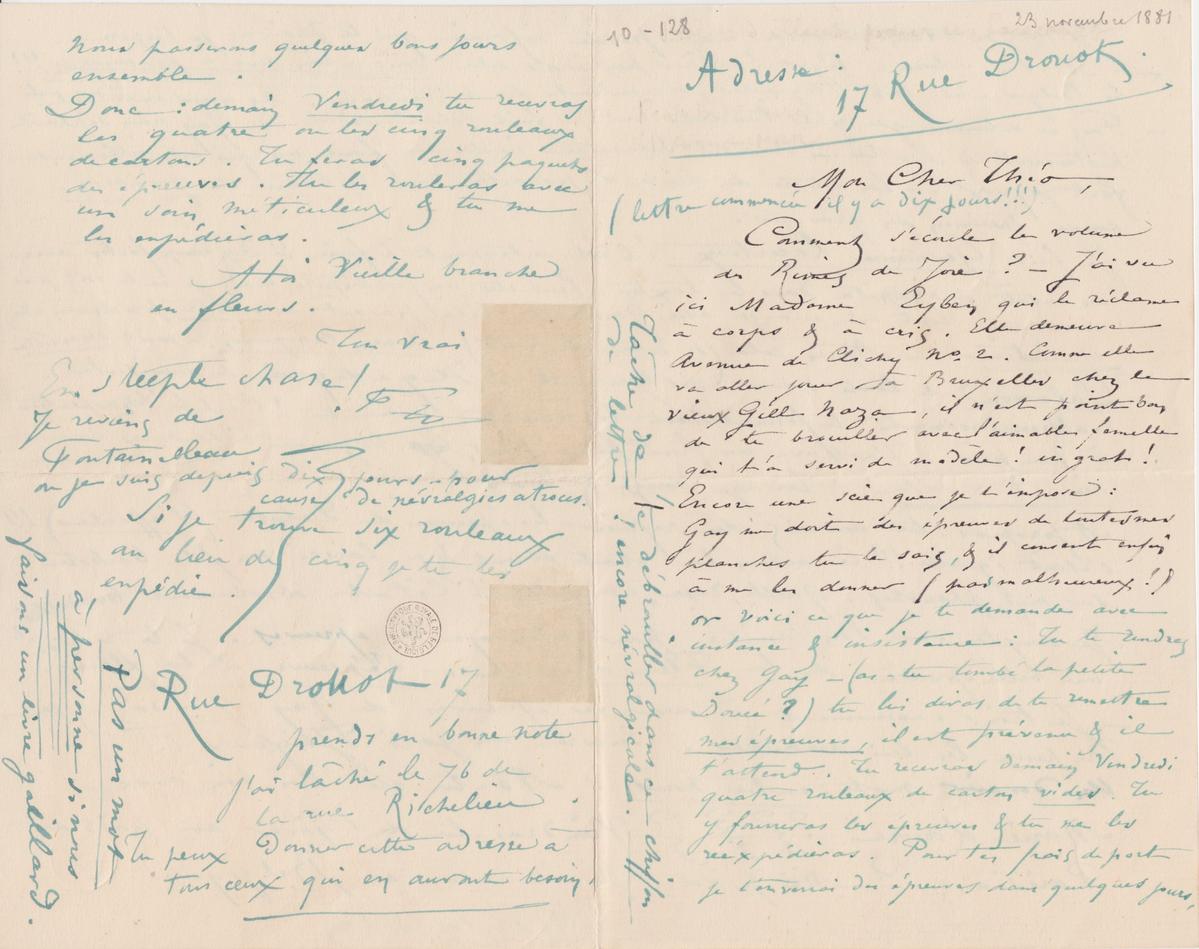 10-128
23 novembre 1881
Adresse :
17 Rue Drouot.
Mon Cher Théo,
(lettre commencée il y a dix jours!!!)
Comment s'écoule le volume
des Rimes de Joie ? – J'ai vu
ici Madame Eyben qui le réclame
à corps & à cris. Elle demeure
Avenue de Clichy No. 2. Comme elle
va aller jouer à Bruxelles chez le
vieux Gill Naza, il n'est point bon
de te brouiller avec l'aimable femelle
qui t'a servi de modèle ! ingrat !
Encore une scie que je t'impose :
Gay me doit des épreuves de toutes mes
planches tu le sais, & il consent enfin
à me les donner (pas malheureux !)
or voici ce que je te demande avec
instance & insistance : Tu te rendras
chez Gay – (as-tu tombé la petite
Doucé ?) tu lui diras de te remettre
mes épreuves, il est prévenu & il
t'attend. Tu recevras demain Vendredi
quatre rouleaux de carton vides. Tu
y fourreras les épreuves & tu me les
réexpédieras. Pour tes frais de port
je t'enverrai des épreuves dans quelques jours,
Tâche de te débrouiller dans ce chiffon
de lettre ! encore névralgiculas.
Nous passerons quelques bons jours
ensemble.
Donc : demain Vendredi tu recevras
les quatre ou les cinq rouleaux
de cartons. Tu feras cinq paquets
des épreuves. Tu les rouleras avec
un soin méticuleux & tu me
les expédieras.
A toi Vieille branche
en fleurs.
Ton vrai
En steeple chase !
Je reviens de
Fontainebleau
où je suis depuis dix jours – pour
cause de névralgies atroces.
Si je trouve six rouleaux
au lieu de cinq je te les
expédie.
Rue Drouot 17
prends en bonne note
J'ai lâché le 76 de
la rue Richelieu.
Tu peux donner cette adresse à
tous ceux qui en auront besoin,
Pas un mot
à personne si nous
faisons un livre gaillard.